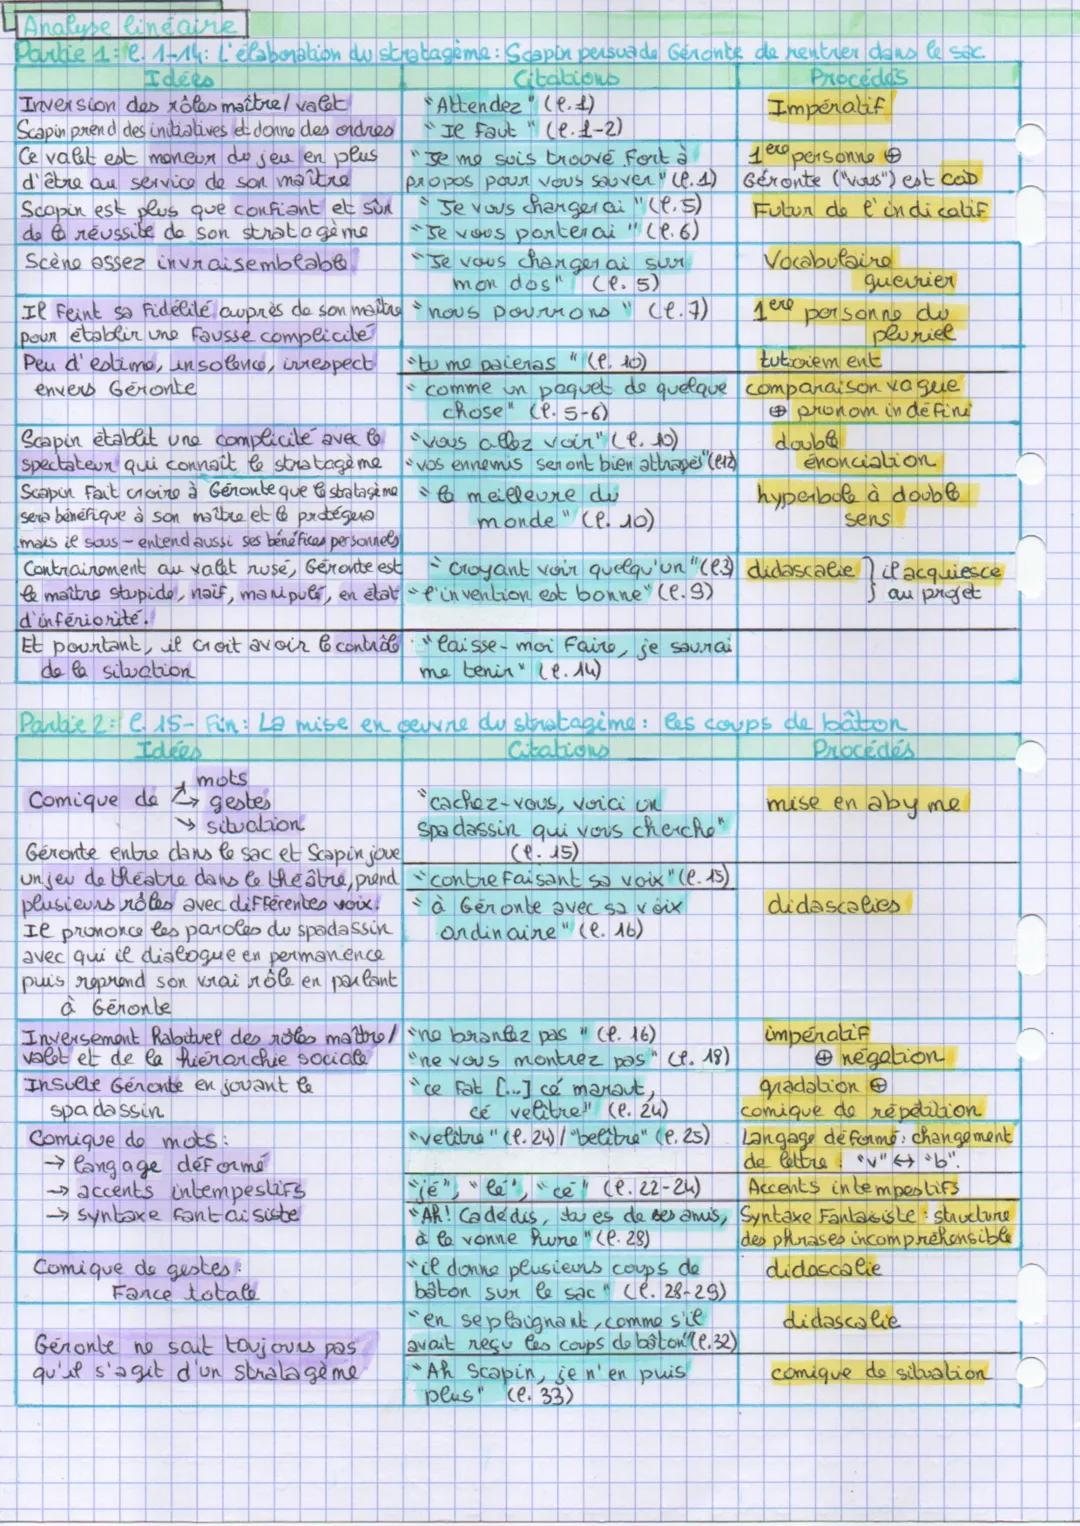 Analyse linéaire
Partie 1 : l. 1-14 : L'élaboration du stratagème : Scapin persuade Géronte de rentrer dans le sac.
Idées Citations Procédés
Inversion des rôles maître/valet "Attendez" (l.1) Impératif
Scapin prend des initiatives et donne des ordres "Il faut" (l.1-2)
Ce valet est meneur du jeu en plus "Je me suis trouvé fort à 1ère personne ⊕
d'être au service de son maître propos pour vous sauver" (l.1) Géronte ("vous") est COD
Scapin est plus que confiant et sûr "Je vous chargerai" (l.5) Futur de l'indicatif
de la réussite de son stratagème "Je vous porterai" (l.6)
Scène assez invraisemblable "Je vous chargerai sur Vocabulaire
mon dos" (l.5) guerrier
Il feint sa fidélité auprès de son maître "nous pourrons" (l.7) 1ère personne du
pour établir une fausse complicité pluriel
Peu d'estime, insolence, irrespect "tu me paieras" (l. 10) tutoiement
envers Géronte "comme un paquet de quelque comparaison vague
chose" (l.5-6) ⊕ pronom indéfini
Scapin établit une complicité avec le "vous allez voir" (l.10) double
spectateur qui connaît le stratagème "vos ennemis seront bien attrapés" (l12) énonciation
Scapin fait croire à Géronte que le stratagème "la meilleure du hyperbole à double
sera bénéfique à son maître et le protégera monde" (l.10) sens
mais il sous-entend aussi ses bénéfices personnels
Contrairement au valet rusé, Géronte est "croyant voir quelqu'un" (l.3) didascalie } il acquiesce
le maître stupide, naïf, manipulé, en état "l'invention est bonne" (l.9) au projet
d'infériorité.
Et pourtant, il croit avoir le contrôle "laisse-moi faire, je saurai
de la situation me tenir" (l.14)
Partie 2 : l. 15- Fin : La mise en oeuvre du stratagème : les coups de bâton
Idées Citations Procédés
mots
Comique de → gestes "cachez-vous, voici un mise en abyme
→ situation spadassin qui vous cherche"
Géronte entre dans le sac et Scapin joue (l.15)
un jeu de théâtre dans le théâtre, prend "contrefaisant sa voix" (l.15)
plusieurs rôles avec différentes voix. "à Géronte avec sa voix didascalies
Il prononce les paroles du spadassin ordinaire" (l.16)
avec qui il dialogue en permanence
puis reprend son vrai rôle en parlant
à Géronte
Inversement habituel des rôles maître/ "ne branlez pas" (l.16) impératif
valet et de la hiérarchie sociale "ne vous montrez pas" (l.18) ⊕ négation
Insulte Géronte en jouant le "ce fat [...] cé maraut, gradation ⊕
spadassin cé velître" (l.24) comique de répétition
Comique de mots : "velitre" (l.24) / "belître" (l.25) Langage déformé : changement
→ langage déformé de lettre : "v" ↔ "b".
→ accents intempestifs "jé", "lé", "cé" (l.22-24) Accents intempestifs
→ syntaxe fantaisiste "Ah! Cadédis, tu es de ses amis, Syntaxe fantaisiste : structure
à la vonne hure" (l.28) des phrases incompréhensible
Comique de gestes : "il donne plusieurs coups de didascalie
Farce totale bâton sur le sac" (l.28-29)
"en se plaignant, comme s'il didascalie
Géronte ne sait toujours pas avait reçu les coups de bâton" (l.32)
qu'il s'agit d'un stratagème "Ah Scapin, je n'en puis comique de situation
plus" (l.33)